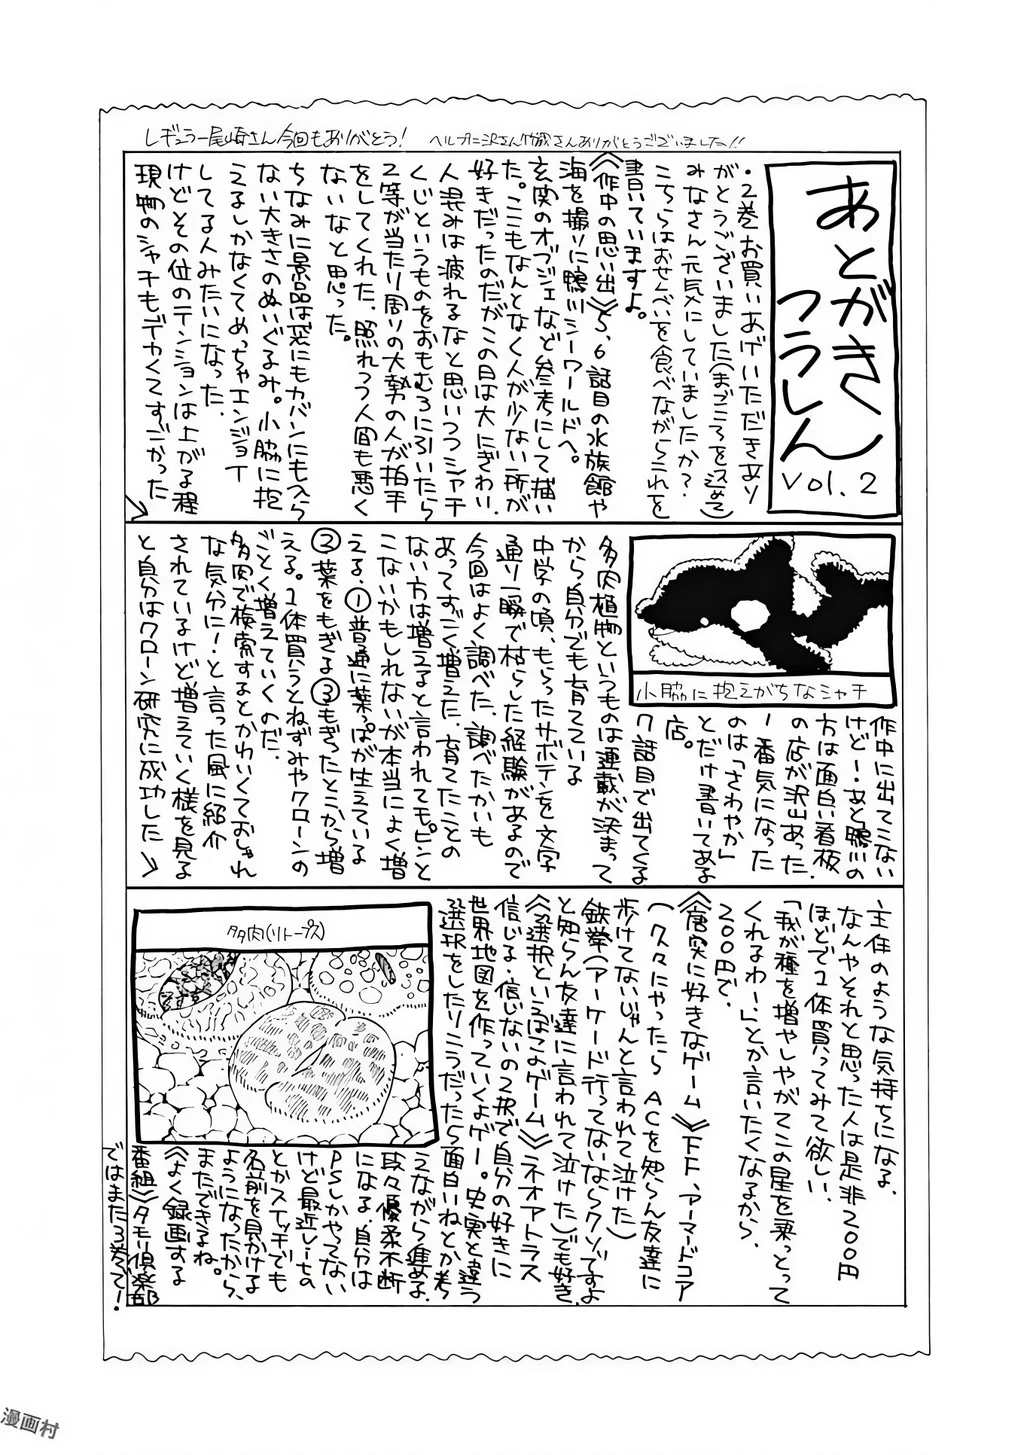 レギュラー尾崎さん今回もありがとう!
ヘルプ二沢さん竹蔵さんありがとうございました!!
あとがき
つうしん
vol.2
・2巻お買いあげいただきあり
がとうございました(まごころを込めて)
みなさん元気にしていましたか?
こちらはおせんべいを食べながらこれを
書いていますよ。
《作中の思い出》5、6話目の水族館や
海を撮りに鴨川シーワールドへ。
玄関のオブジェなど参考にして描い
た。ここもなんとなく人が少ない所が
好きだったのだがこの日は大にぎわい。
人混みは疲れるなと思いつつシャチ
くじというものをおもむろに引いたら
2等が当たり周りの大勢の人が拍手
をしてくれた。照れつつ人間も悪く
ないなと思った。
ちなみに景品は袋にもカバンにも入ら
ない大きさのぬいぐるみ。小脇に抱
えるしかなくてめっちゃエンジョイ
してる人みたいになった。
けどその位のテンションは上がる程
現物のシャチもデカくてすごかった
小脇に抱えがちなシャチ
作中に出てこない
けど・あと鴨川の
方は面白い看板
の店が沢山あった。
1番気になった
のは「さわやか」
とだけ書いてある
店。
7話目で出てくる
多肉植物というものは連載が決まって
から自分でも育てている
中学の頃、もらったサボテンを文字
通り一瞬で枯らした経験があるので
今回はよく調べた、調べたかいも
あってすごく増えた。育てたことの
ない方は増えると言われてもピンと
こないかもしれないが本当によく増
える。①普通に葉っぱが生えている
②葉をもぎる③もぎったとこから増
える。2体買うとねずみやクローンの
ごとく増えていくのだ。
多肉で検索するとかわいくておしゃれ
な気分に!と言った風に紹介
されているけど増えていく様を見る
と自分はクローン研究に成功した
主任のような気持ちになる。
なんやそれと思った人は是非200円
ほどで1体買ってみて欲しい。
「我が種を増やしやがてこの星を乗っとって
くれるわー!」とか言いたくなるから、
200円で。
《唐突に好きなゲーム》FF、アーマードコア
(久々にやったらACを知らん友達に
歩けてないじゃんと言われて泣けた)
鉄拳(アーケード行ってないならクソッですよ
と知らん友達に言われて泣けた)でも好き。
《選択といえばこよゲーム》ネオアトラス
信じる・信じないの2択で自分の好きに
世界地図を作っていくよゲー。史実と違う
選択をしたりこうだったら面白いねとか考
えながら進める。
段々優柔不断
になる。自分は
PSしかやってない
けど最近レートの
とかスイッチでも
名前を見かける
ようになったから、
またできるね。
《よく録画する
番組》タモリ倶楽部
ではまた3巻で!
多肉(リトープス)
漫画村